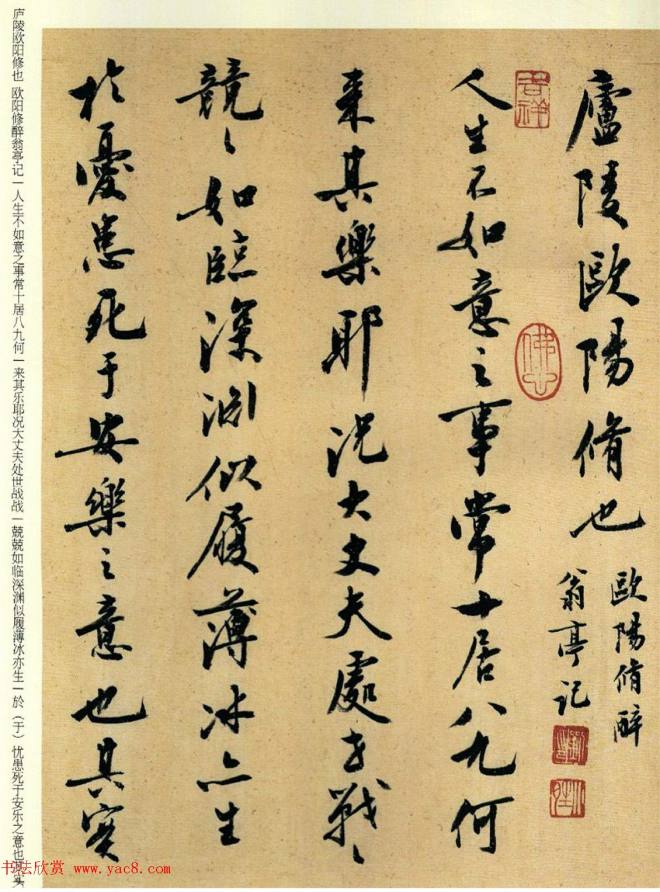 廬陵歐陽脩也
歐陽脩醉
翁亭記
吉祥
人生不如意之事常十居八九何
佛山
来其樂耶况大丈夫處世戰〻
競〻如臨深渊似履薄冰亦生
於憂患死于安樂之意也其实
庐陵欧阳修也 欧阳修醉翁亭记—人生不如意之事常十居八九何—来其乐耶况大丈夫处世战战—兢兢如临深渊似履薄冰亦生—於（于）忧患死于安乐之意也其实
书法欣赏 www.yac8.com